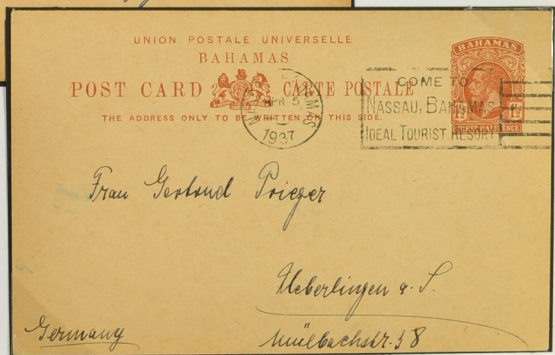 UNION POSTALE UNIVERSELLE
BAHAMAS
POST CARD CARTE POSTALE
THE ADDRESS ONLY TO BE WRITTEN ON THIS SIDE.
APR 5
1937
COME TO
NASSAU, BAHAMAS
IDEAL TOURIST RESORT
BAHAMAS
Frau Gertrud Prieger
Ueberlingen a. S.
Germany
Mülbachstr. 38